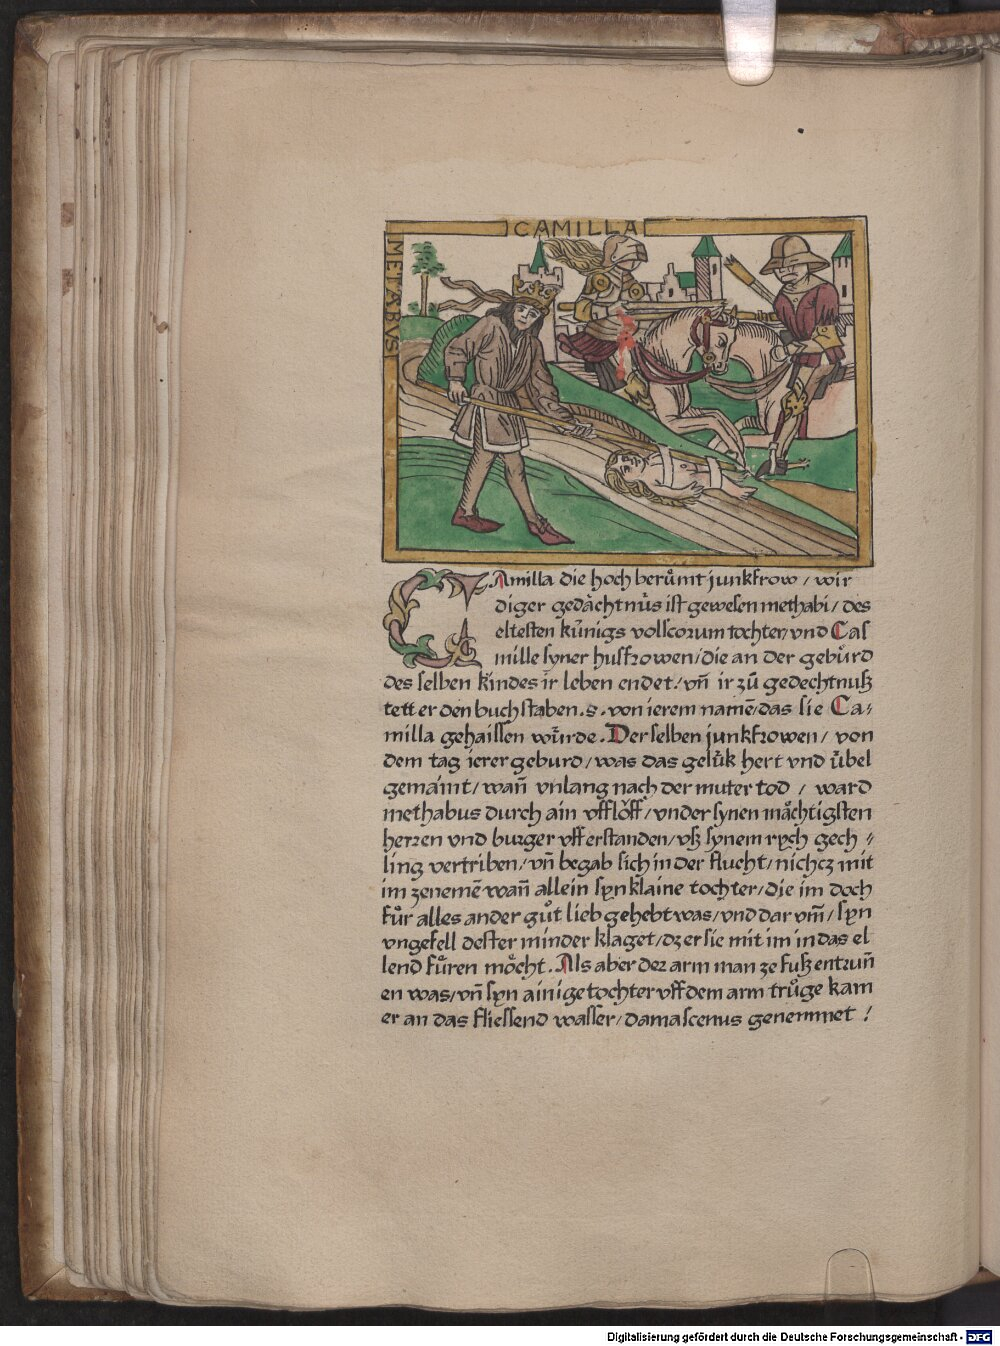 CAMILLA
METABVS
CAmilla die hoch berůmt junkfrow / wir
diger gedächtnüs ist gewesen methabi / des
eltesten künigs volscorum tochter/ vnd Cas
mille syner husfrowen/ die an der gebůrd
des selben kindes ir leben endet / vñ ir zů gedechtnusz
tett er den buchstaben .s. von ierem namē/ das sie Ca⸗
milla gehaissen würde. Der selben junkfrowen/ von
dem tag ierer geburd/ was das gelük hert vnd übel
gemaint/ wañ vnlang nach der muter tod / ward
methabus durch ain vfflöff/ vnder synen mächtigsten
herren vnd burger vff erstanden/ vsz synem rych gech ⸗
ling vertriben/ vñ begab sich in der flucht/ nichcz mit
im zenemē wañ allein syn klaine tochter/ die im doch
für alles ander gůt lieb gehebt was/ vnd dar vm̃/ syn
vngefell dester minder klaget/ dz er sie mit im in das el
lend füren möcht. Als aber der arm man ze fusz entruñ
en was/ vñ syn ainige tochter vff dem arm trůge kam
er an das fliessend wasser/ damascenus genemmet /
Digitalisierung gefördert durch die Deutsche Forschungsgemeinschaft - DFG